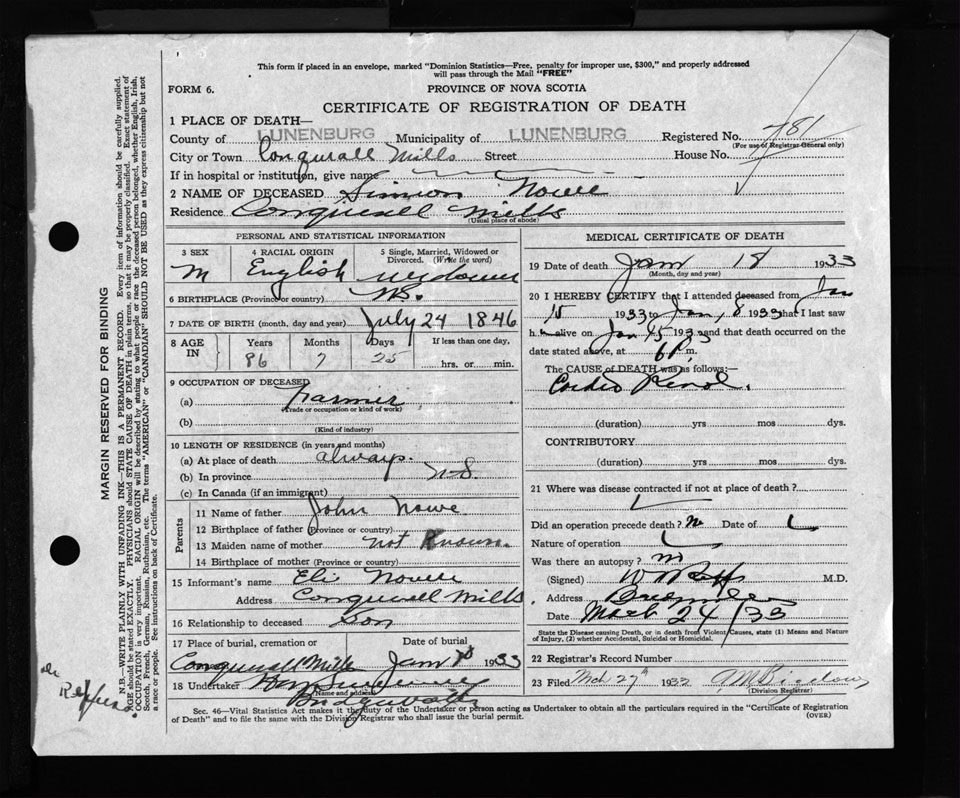 This form if placed in an envelope, marked "Dominion Statistics—Free, penalty for improper use, $300," and properly addressed
will pass through the Mail "FREE"
FORM 6. PROVINCE OF NOVA SCOTIA
CERTIFICATE OF REGISTRATION OF DEATH
1 PLACE OF DEATH—
County of LUNENBURG Municipality of LUNENBURG Registered No. 781
(For use of Registrar-General only)
City or Town Conquerall Mills Street House No.
If in hospital or institution, give name
2 NAME OF DECEASED Simeon Nowe
Residence Conquerall Mills
(Usual place of abode)
PERSONAL AND STATISTICAL INFORMATION
3 SEX 4 RACIAL ORIGIN 5 Single, Married, Widowed or Divorced. (Write the word)
M English widower
6 BIRTHPLACE (Province or country) N.S.
7 DATE OF BIRTH (month, day and year) July 24 1846
8 AGE IN Years Months Days If less than one day,
86 7 25 hrs. or min.
9 OCCUPATION OF DECEASED
(a) Farmer
(Trade or occupation or kind of work)
(b)
(Kind of industry)
10 LENGTH OF RESIDENCE (in years and months)
(a) At place of death always.
(b) In province N.S.
(c) In Canada (if an immigrant)
Parents
11 Name of father John Nowe
12 Birthplace of father (Province or country)
13 Maiden name of mother not Known.
14 Birthplace of mother (Province or country)
15 Informant's name Eli Nowe
Address Conquerall Mills
16 Relationship to deceased Son
17 Place of burial, cremation or Date of burial
Conquerall Mills Jan 1933
18 Undertaker
(Name and address)
Bridgewater
MEDICAL CERTIFICATE OF DEATH
19 Date of death Jan 18 1933
(Month, day and year)
20 I HEREBY CERTIFY that I attended deceased from Jan
15 1933 to Jan, 8 1933 that I last saw
h alive on Jan 15 1933 and that death occurred on
date stated above, at 6 P. m.
The CAUSE of DEATH was as follows:—
Cardio Renal.
(duration) yrs mos dys.
CONTRIBUTORY
(duration) yrs mos dys.
21 Where was disease contracted if not at place of death?
Did an operation precede death? No Date of
Nature of operation
Was there an autopsy? no
(Signed) M.D.
Address
Date March 24/33
State the Disease causing Death, or in death from Violent Causes, state (1) Means and Nature
of Injury, (2) whether Accidental, Suicidal or Homicidal.
22 Registrar's Record Number
23 Filed Mch 27th 1933
(Division Registrar)
Sec. 46—Vital Statistics Act makes it the duty of the Undertaker or person acting as Undertaker to obtain all the particulars required in the "Certificate of Registration
of Death" and to file the same with the Division Registrar who shall issue the burial permit. (OVER)
MARGIN RESERVED FOR BINDING
N.B.—WRITE PLAINLY WITH UNFADING INK—THIS IS A PERMANENT RECORD. Every item of information should be carefully supplied.
AGE should be stated EXACTLY. PHYSICIANS should STATE CAUSE OF DEATH in plain terms, so that it may be properly classified. Exact statement of
OCCUPATION is very important. RACIAL ORIGIN will be described by stating to what people or race the deceased person belonged, whether English, Irish,
Scotch, French, German, Russian, Ruthenian, etc. The terms "AMERICAN" or "CANADIAN" SHOULD NOT BE USED as they express citizenship but not
a race or people. See instructions on back of Certificate.